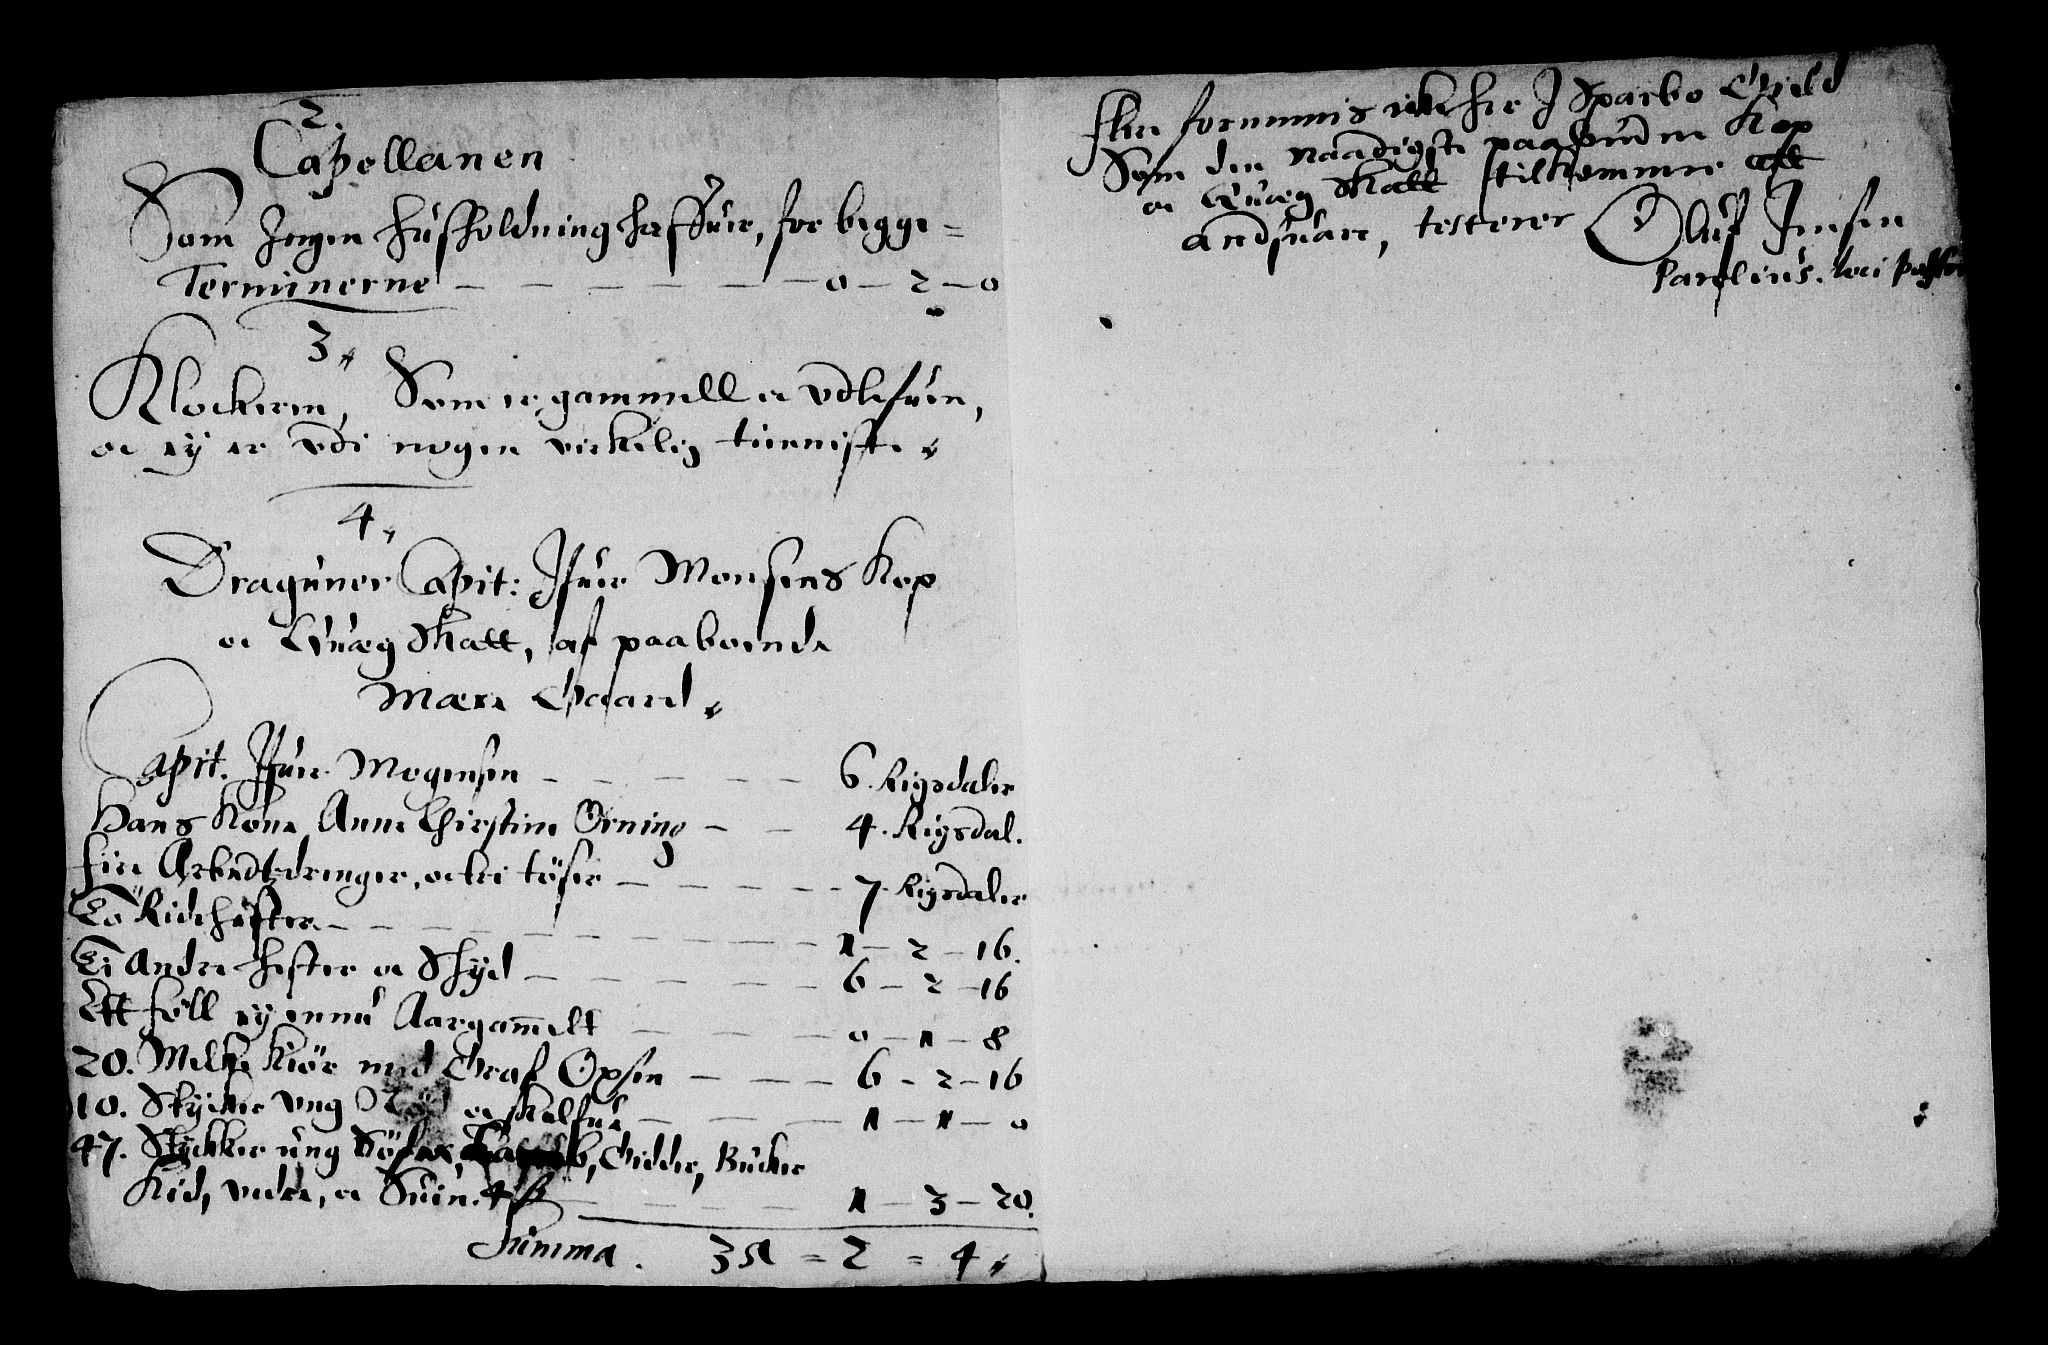 2.
Capellanen
Som Ingen Husholdning haffuer, for begge
Terminerne — — — — — — 0 — 2 — 0
3
Klockeren, Som er gammell oc Udlefuen,
oc ey er Udi nogen virkelig tienniste
4
Draguner Capit: Ifuer Monsens Kop
oc Quæg Skatt, af paaboende
Mære Gaard
Capit. Ifuer Mogensen — — — — — 6. Rigsdaler
Hans Kone Anne Chirstine Orning — — 4. Rigsdal.
fire Arbeidtzdrenger, oc tri töser — — — — 7. Rigsdaler
To Ridehester — — — — — — — 1 — 2 — 16.
Ti Andre hester oc Skyd — — — — — 6 — 2 — 16
Ett föll ey ennu Aargammelt — — — — 0 — 1 — 8
20. Melke Kiör med Oxsen — — — 6 — 2 — 16
10. Stycker Ung oc Kalfue — — — — 1 — 1 — 0
47. Stykker ung Söfer, Gidder, Bucker
Kid, veder, oc Suin. — — — — 1 — 3 — 20.
Summa. 35 = 2 = 4
fornimmis icke her I Sparbo Gield
Som den Naadigste paabudne Kop
oc Quæg Skatt tilkommer att
andsuare, testerer Oluf Jensen
Parelius. loci pastor